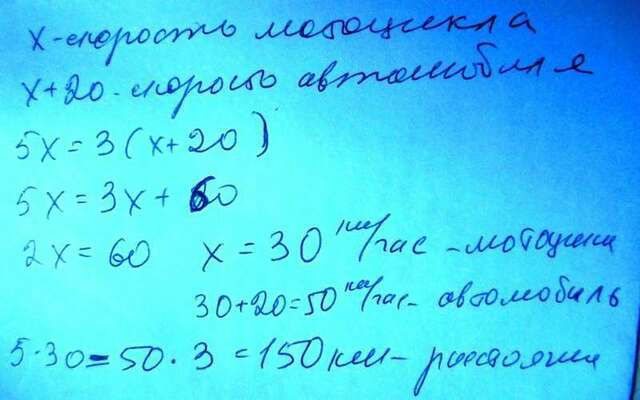 x - скорость мотоцикла
x+20 - скорость автомобиля
5x = 3(x+20)
5x = 3x + 60
2x = 60 x = 30 км/час - мотоцикл
30+20=50 км/час - автомобиль
5·30=50·3=150 км - расстояние